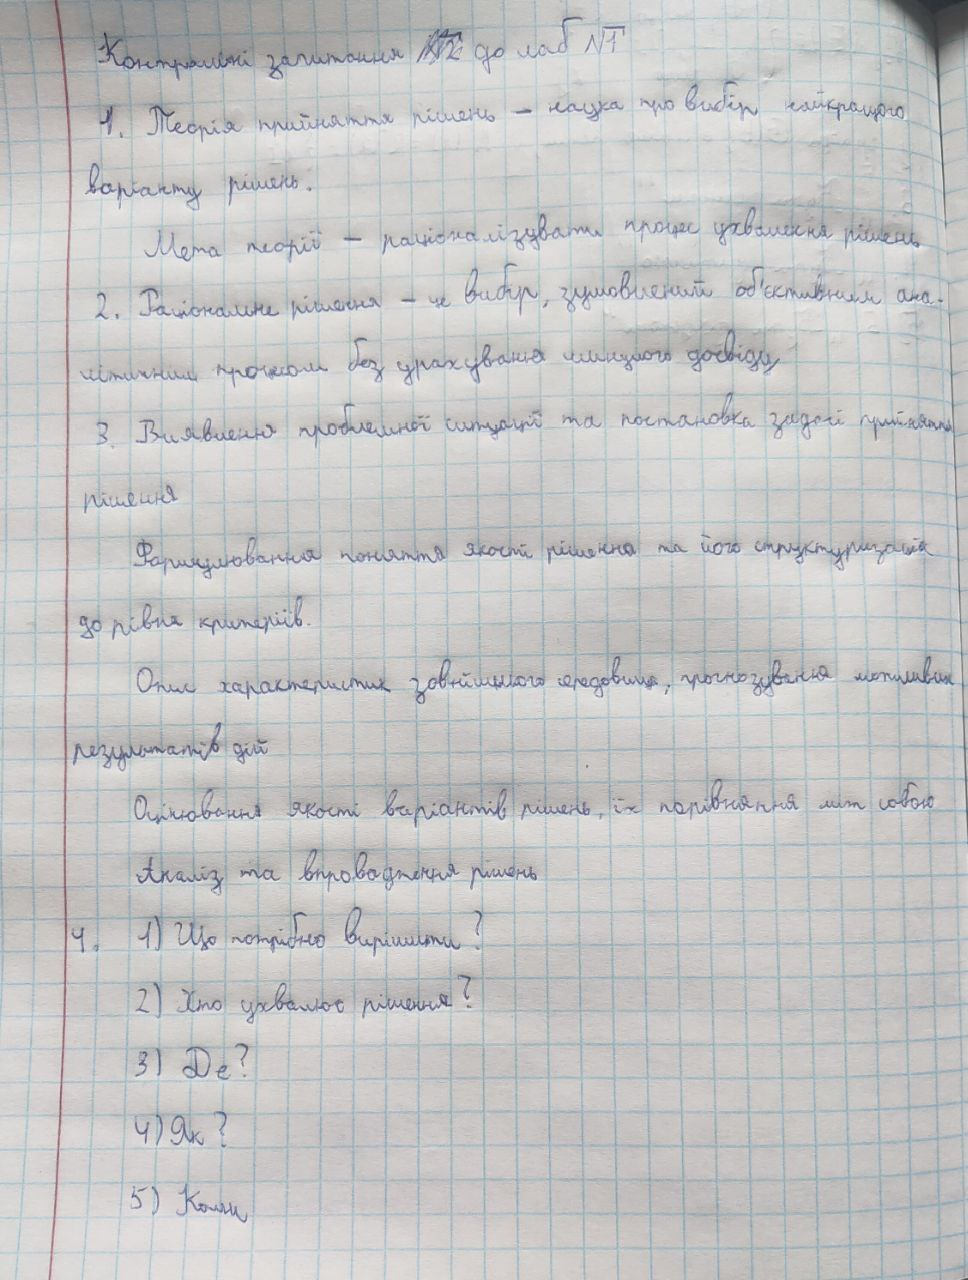 Контрольні запитання до лаб №1
1. Теорія прийняття рішень – наука про вибір найкращого
варіанту рішень.
Мета теорії – раціоналізувати процес ухвалення рішень
2. Раціональне рішення – це вибір, зумовлений об'єктивним ана-
літичним процесом без урахування минулого досвіду
3. Виявлення проблемної ситуації та постановка задачі прийняття
рішення
Формулювання поняття якості рішення та його структуризація
до рівня критеріїв.
Опис характеристик зовнішнього середовища, прогнозування можливих
результатів дій
Оцінювання якості варіантів рішень, їх порівняння між собою
Аналіз та впровадження рішень
4. 1) Що потрібно вирішити?
2) Хто ухвалює рішення?
3) Де?
4) Як?
5) Коли